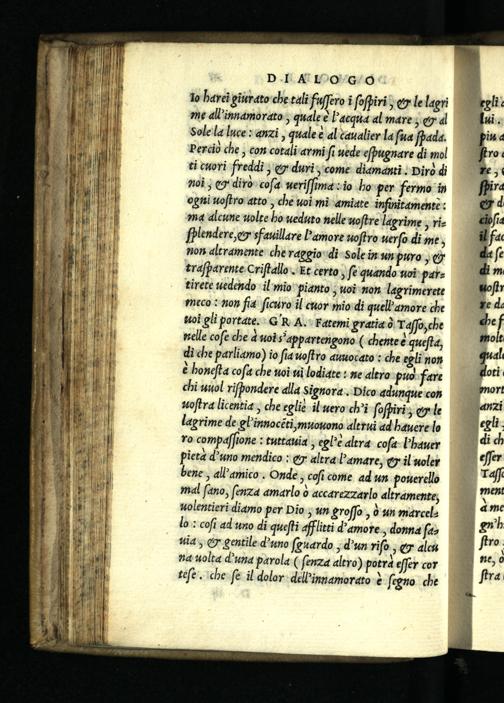 DIALOGO
Io harei giurato che tali fussero i sospiri, & le lagri
me all'innamorato, quale è l'acqua al mare, & al
Sole la luce: anzi, quale è al caualier la sua spada.
Perciò che, con cotali armi si uede espugnare di mol
ti cuori freddi, & duri, come diamanti. Dirò di
noi, & dirò cosa uerissima: io ho per fermo in
ogni uostro atto, che uoi mi amiate infinitamente:
ma alcune uolte ho ueduto nelle uostre lagrime, ri=
splendere, & sfauillare l'amore uostro uerso di me,
non altramente che raggio di Sole in un puro, &
trasparente Cristallo. Et certo, se quando uoi par=
tirete uedendo il mio pianto, uoi non lagrimerete
meco: non fia sicuro il cuor mio di quell'amore che
uoi gli portate. GRA. Fatemi gratia ò Tasso, che
nelle cose che à uoi s'appartengono (chente è questa,
di che parliamo) io sia uostro auuocato: che egli non
è honesta cosa che uoi ui lodiate: ne altro può fare
chi uuol rispondere alla Signora. Dico adunque con
uostra licentia, che egliè il uero ch'i sospiri, & le
lagrime de gl'innocēti, muouono altrui ad hauere lo
ro compassione: tuttauia, egl'è altra cosa l'hauer
pietà d'uno mendico: & altra l'amare, & il uoler
bene, all'amico. Onde, così come ad un pouerello
mal sano, senza amarlo ò accarezzarlo altramente,
uolentieri diamo per Dio, un grosso, ò un marcel=
lo: così ad uno di questi afflitti d'amore, donna sa=
uia, & gentile d'uno sguardo, d'un riso, & alcu
na uolta d'una parola (senza altro) potrà esser cor
tese. che se il dolor dell'innamorato è segno che